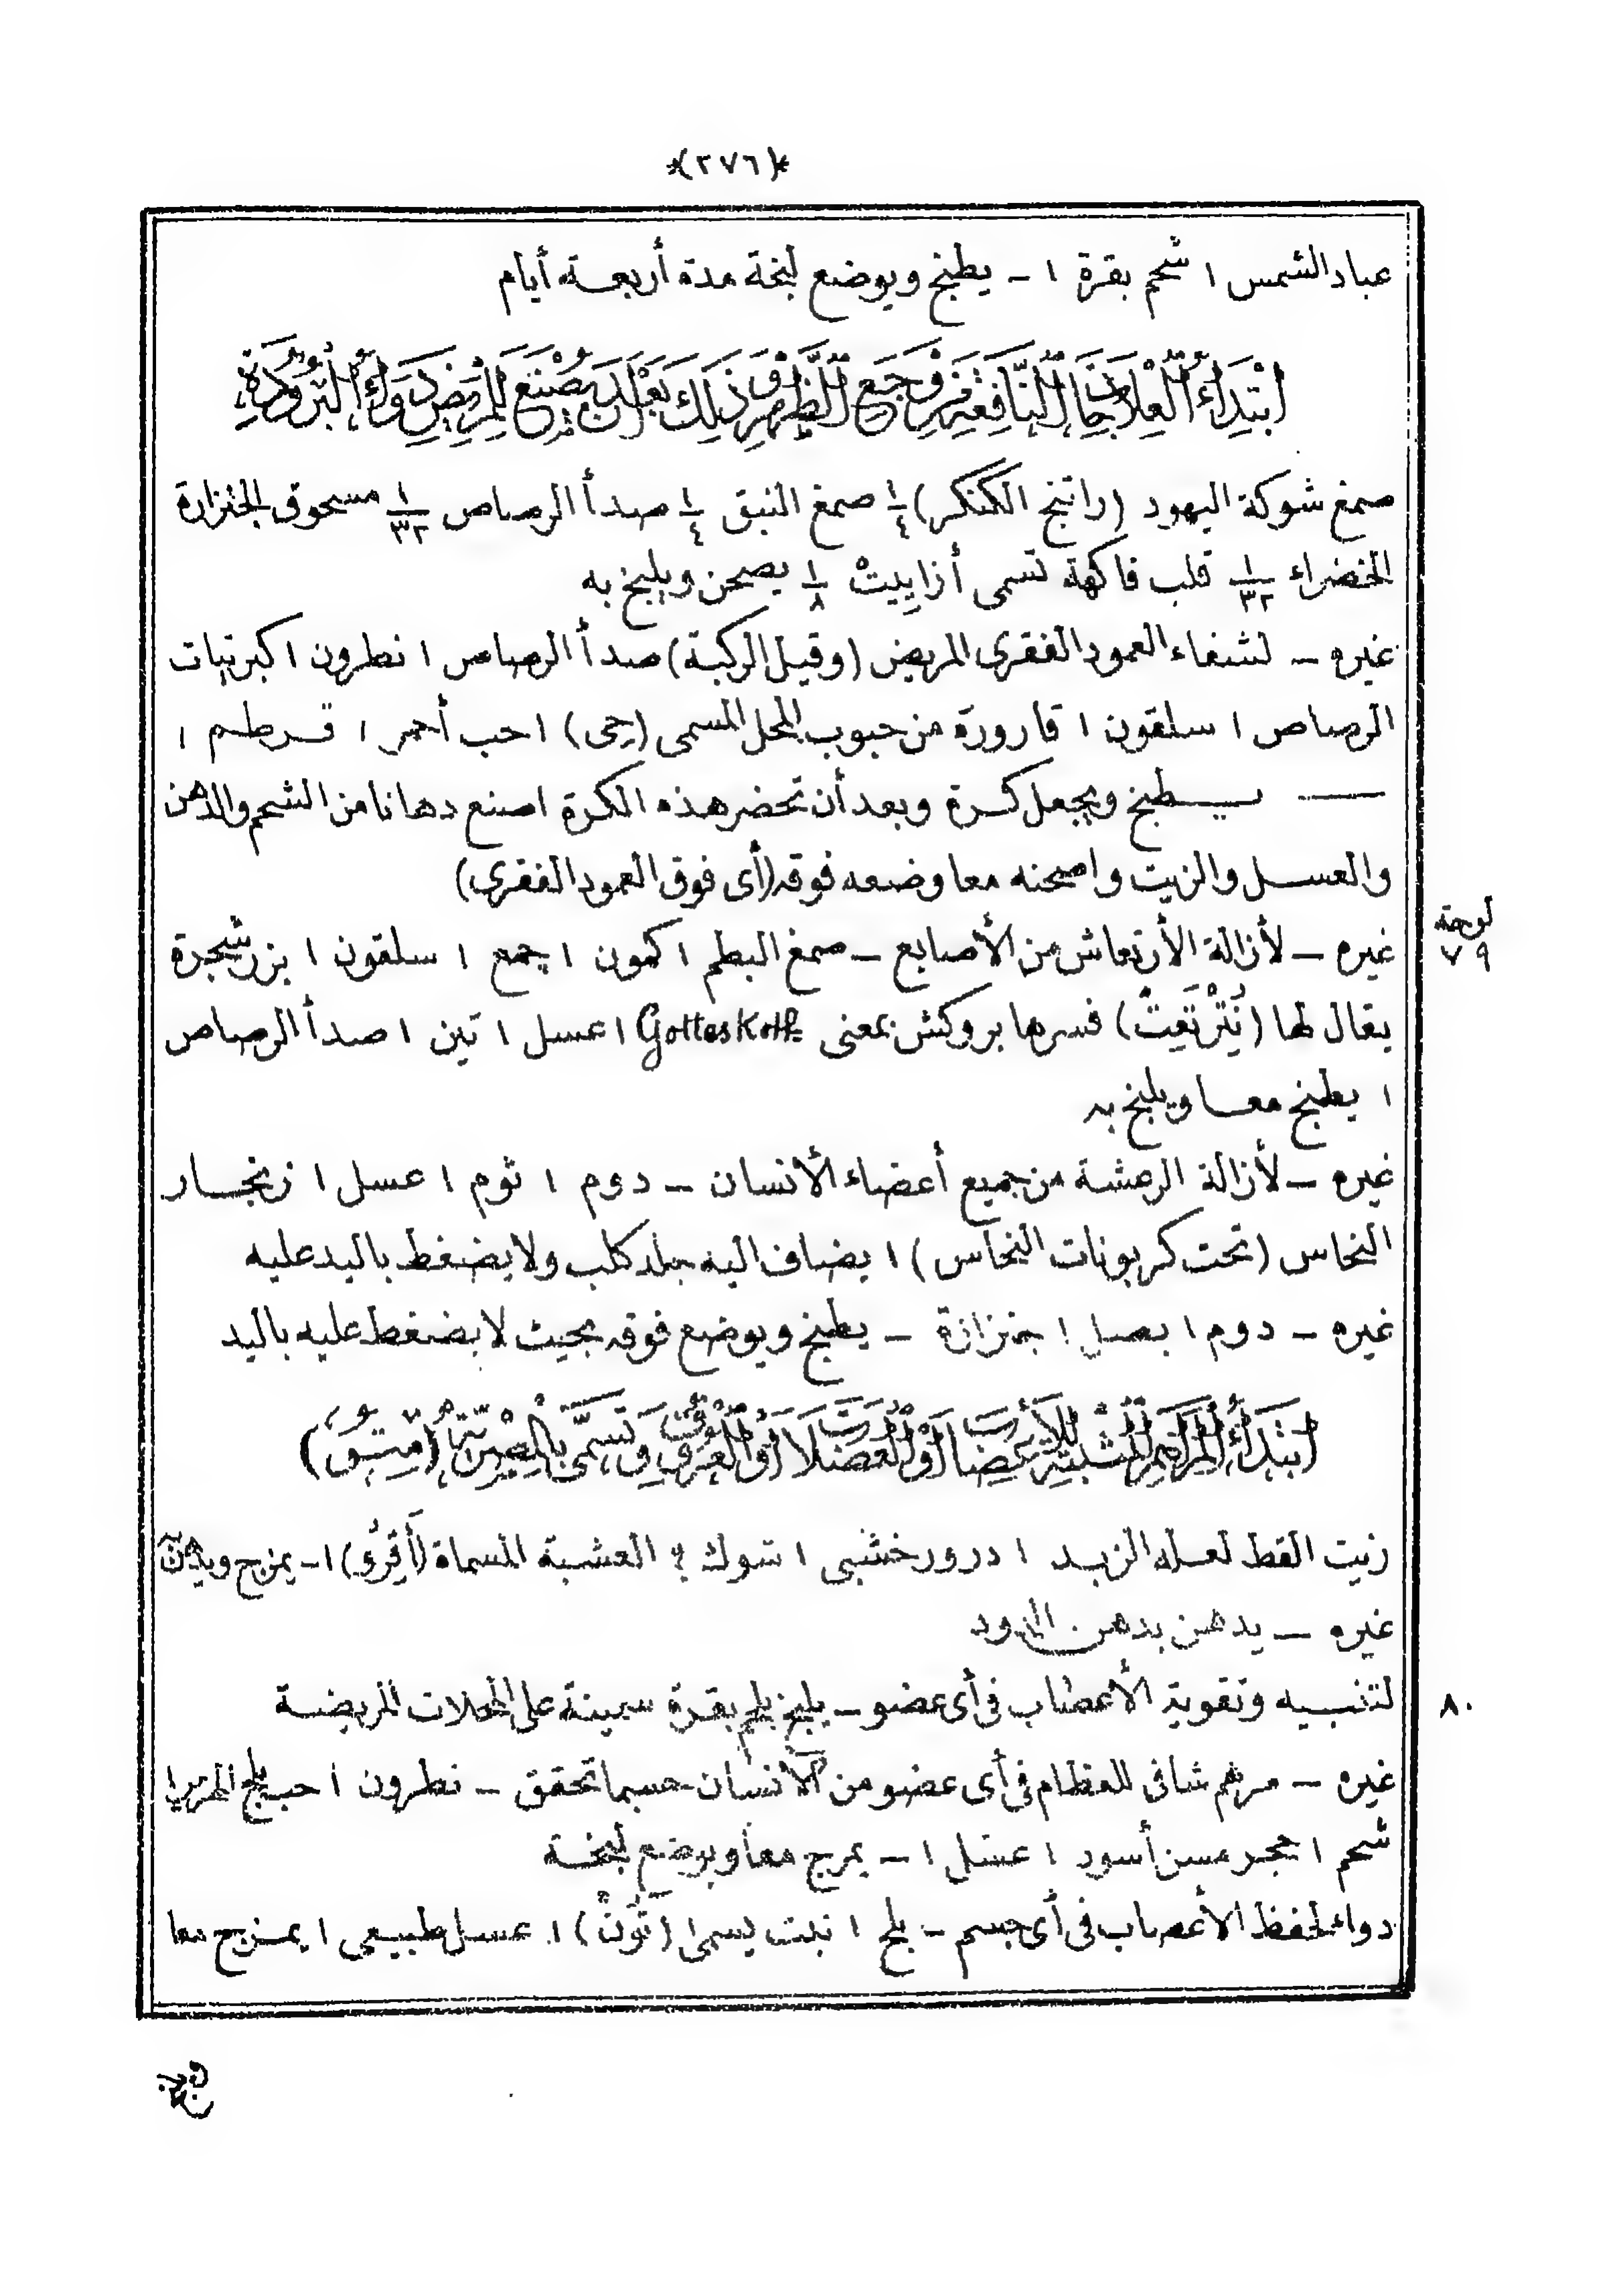 *(٢٧٦)*
عباد الشمس ١ شحم بقرة ١ - يطبخ ويوضع لبخة مدة أربعة أيام
ابتداء العلاجات النافعة من وجع الظهر وفوق ذلك بعد أن يصنع للمريض دواء البرودة
صمغ شوكة اليهود (راتنج الكنكر) ١/٤ صمغ النبق ١/٤ صدأ الرصاص ١/٣٢ مسحوق الجنزارة
الخضراء ١/٣٢ قلب فاكهة تسمى أزاييت ١/٨ يصحن ويلبخ به
غيره - لشفاء العمود الفقرى المريض (وقيل الركبة) صدأ الرصاص ١ نطرون ١ كبريتات
الرصاص ١ سلقون ١ قارورة من حبوب المحل المسمى (جى) ١ حب أحمر ١ قرطم ١
— يطبخ ويجعل كرة وبعد أن تحضر هذه الكرة اصنع دهانا من الشحم والدهن
والعسل والزيت واصحنه معا وضعه فوقه (أى فوق العمود الفقرى)
لوحة ٧٩
غيره - لأزالة الأرتعاش من الأصابع - صمغ البطم ١ كمون ١ جمع ١ سلقون ١ بزر شجرة
يقال لها (نترتعيت) فسرها بروكش بمعنى Gotteskoth ١ عسل ١ تين ١ صدأ الرصاص
١ يطبخ معا ويلبخ به
غيره - لأزالة الرعشة من جميع أعضاء الأنسان - دوم ١ ثوم ١ عسل ١ زنجار
النحاس (تحت كربونات النحاس) ١ يضاف اليه جلد كلب ولا يضغط باليد عليه
غيره - دوم ١ بصل ١ جنزارة - يطبخ ويوضع فوقه بحيث لا يضغط عليه باليد
ابتداء المراهم المثبتة للأعضاء أو العضلات أو العروق وتسمى بالمصرية (متو)
زيت القط لعله الزبد ١ درور خشبى ١ شوك ؟ العشبة المسماة (أقرو) ١ - يمزج ويدهن
غيره - يدهن بدهن الدود
٨٠
لتنبيه وتقوية الأعصاب فى أى عضو - يلبخ بلحم بقرة سمينة على المحلات المريضة
غيره - مرهم شافى للعظام فى أى عضو من الأنسان حسبما تحقق - نطرون ١ حب بلح
شحم ١ حجر مسن أسود ١ عسل ١ - يمزج معا ويوضع لبخة
دواء لحفظ الأعصاب فى أى جسم - بلح ١ نبت يسمى (ثون) ١ عسل طبيعى ١ يمزج معا